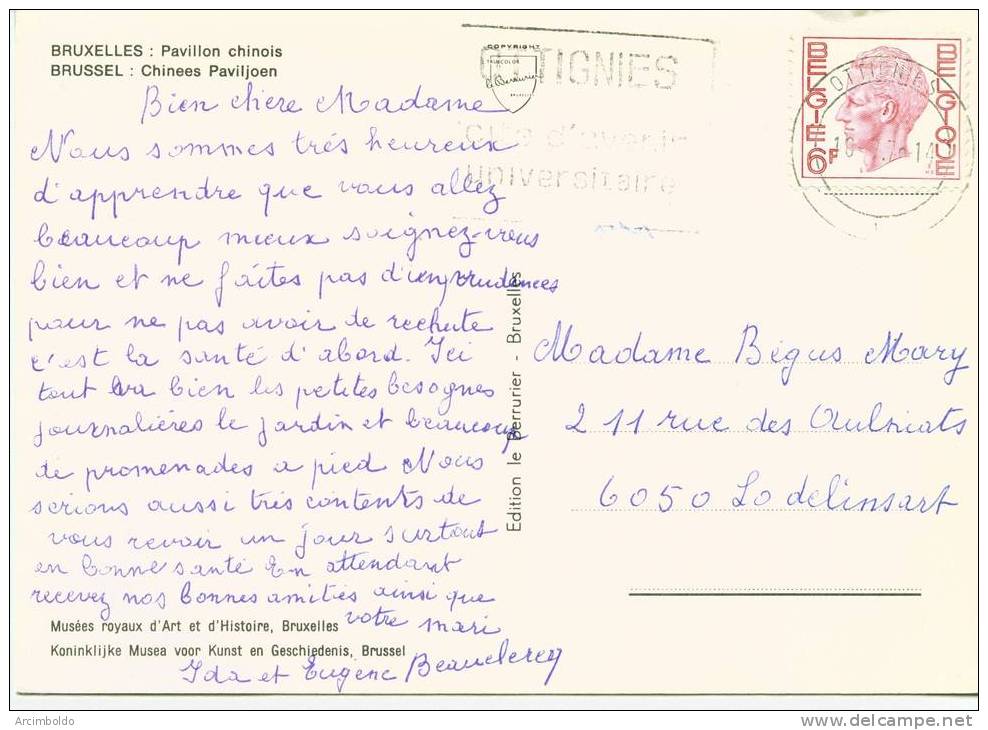 BRUXELLES : Pavillon chinois
BRUSSEL : Chinees Paviljoen
Bien chère Madame
Nous sommes très heureux
d'apprendre que vous allez
beaucoup mieux soignez-vous
bien et ne faites pas d'imprudences
pour ne pas avoir de rechute
c'est la santé d'abord. Ici
tout va bien les petites besognes
journalières le jardin et beaucoup
de promenades a pied Nous
serions aussi très contents de
vous revoir un jour surtout
en bonne santé En attendant
recevez nos bonnes amitiés ainsi que
votre mari
Ida et Eugène Beauclercq
Musées royaux d'Art et d'Histoire, Bruxelles
Koninklijke Musea voor Kunst en Geschiedenis, Brussel
Edition le Berrurier - Bruxelles
COPYRIGHT
OTTIGNIES
Cité d'avenir
universitaire
BELGIE BELGIQUE
6F
OTTIGNIES
Madame Bégus Mary
211 rue des Aulniats
6050 Lodelinsart
Arcimboldo
www.delcampe.net